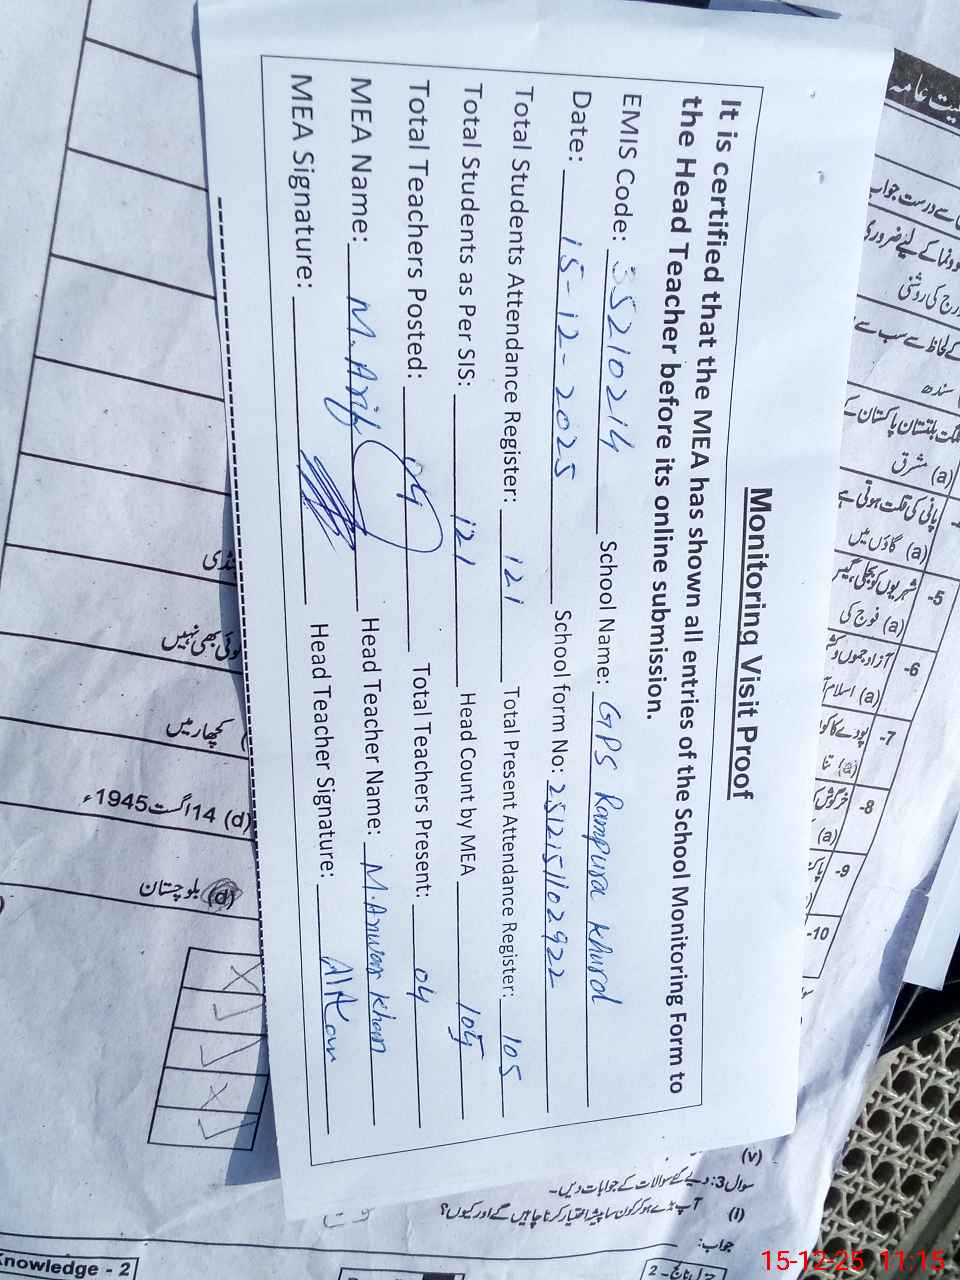 Monitoring Visit Proof
It is certified that the MEA has shown all entries of the School Monitoring Form to
the Head Teacher before its online submission.
EMIS Code: 35210214 School Name: GPS Rampura Khurd
Date: 15-12-2025 School form No: 2512151102922
Total Students Attendance Register: 121 Total Present Attendance Register: 105
Total Students as Per SIS: 121 Head Count by MEA 105
Total Teachers Posted: 04 Total Teachers Present: 04
MEA Name: M. Arif Head Teacher Name: M. Anwar Khan
MEA Signature: Head Teacher Signature:
سے درست جواب
سندھ
(a) مشرق
پانی کی قلت ہوتی ہے
(a) گاؤں میں
-5
(a) فوج کی
-6
-7
(a) تنا
-8
(a)
-9
-10
کوئی بھی نہیں
(d) 14 اگست 1945ء
(d) بلوچستان
(v)
سوال 3: دیے گئے سوالات کے جوابات دیں۔
(i) آپ بڑے ہو کر کون سا پیشہ اختیار کرنا چاہیں گے اور کیوں؟
جواب:
Knowledge - 2
15-12-25 11:15